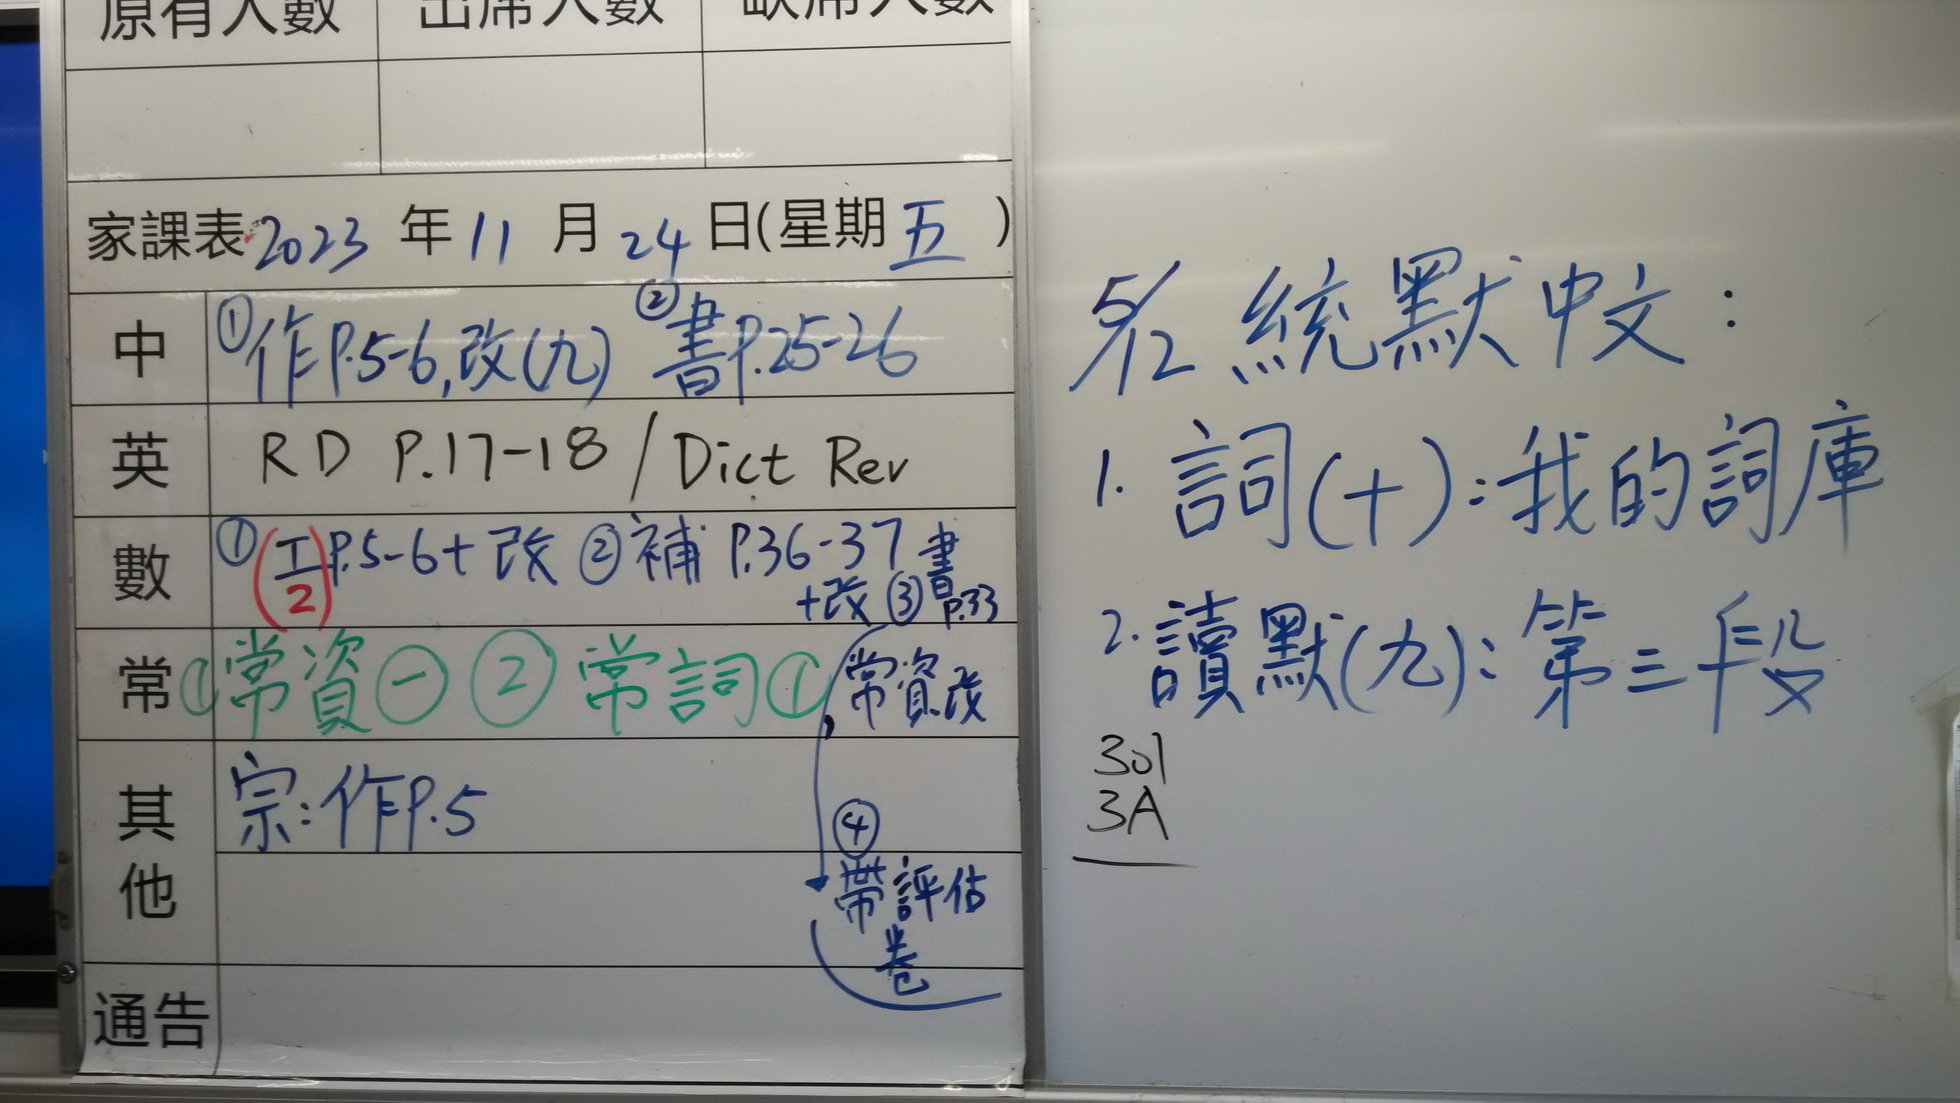 原有人數 出席人數 缺席人數
家課表 2023 年 11 月 24 日(星期 五 )
中 ①作P.5-6,改(九) ②書P.25-26
英 RD P.17-18 / Dict Rev
數 ①(工/2)P.5-6+改 ②補 P.36-37
+改 ③書P.33
常 ①常資㊀ ② 常詞①, 常資改
其他 宗:作P.5
④
帶評估
卷
通告
5/12 統默中文:
1. 詞(十):我的詞庫
2. 讀默(九):第三段
301
3A